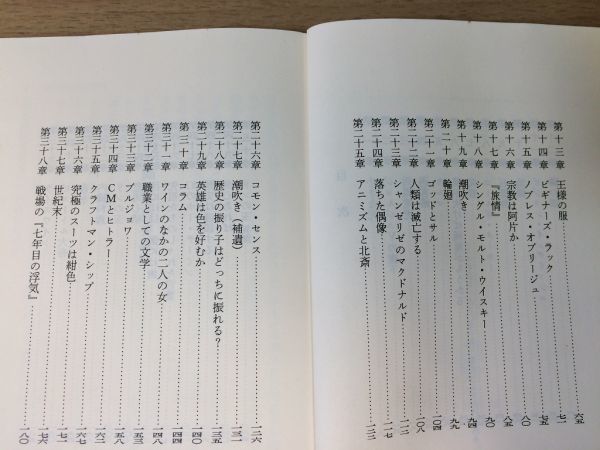 第十三章 王様の服……六五
第十四章 ビギナーズ・ラック……七一
第十五章 ノブレス・オブリージュ……七五
第十六章 宗教は阿片か……八〇
第十七章 『旅情』……八五
第十八章 シングル・モルト・ウイスキー……九〇
第十九章 潮吹き……九四
第二十章 輪廻……九九
第二十一章 ゴッドとサル……一〇四
第二十二章 人類は滅亡する……一〇八
第二十三章 シャンゼリゼのマクドナルド……一一二
第二十四章 落ちた偶像……一一七
第二十五章 アニミズムと北斎……一二二
第二十六章 コモン・センス……一二六
第二十七章 潮吹き（補遺）……一三一
第二十八章 歴史の振り子はどっちに振れる？……一三五
第二十九章 英雄は色を好むか……一四〇
第三十章 コラム……一四四
第三十一章 ワインのなかの二人の女……一四八
第三十二章 職業としての文学……一五三
第三十三章 ブルジョワ……一五八
第三十四章 CMとヒトラー……一六二
第三十五章 クラフトマン・シップ
第三十六章 究極のスーツは紺色……一七一
第三十七章 世紀末……一七六
第三十八章 戦場の『七年目の浮気』……一八〇